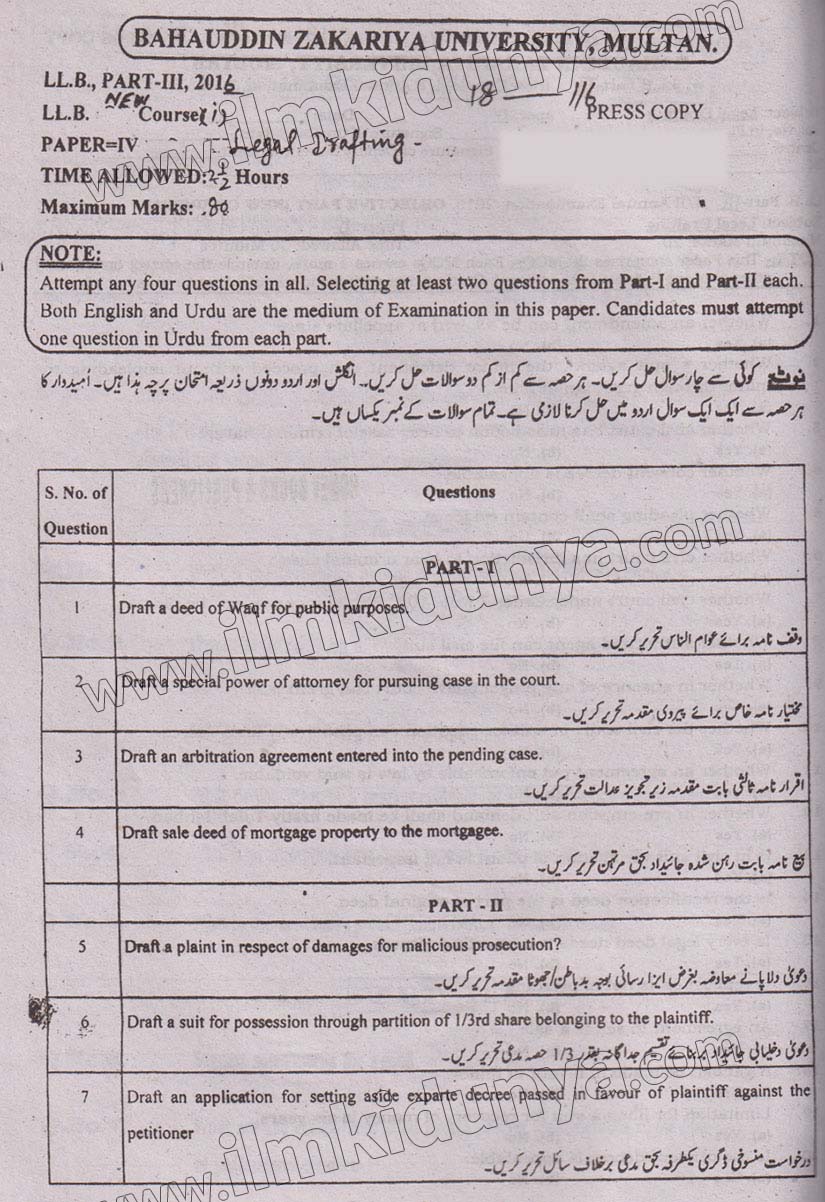 BAHAUDDIN ZAKARIYA UNIVERSITY, MULTAN.
LL.B., PART-III, 2016
18 1/16
LL.B. NEW Course (i)
PRESS COPY
PAPER=IV Legal Drafting -
TIME ALLOWED: 2½ Hours
Maximum Marks: 80
NOTE:
Attempt any four questions in all. Selecting at least two questions from Part-I and Part-II each.
Both English and Urdu are the medium of Examination in this paper. Candidates must attempt
one question in Urdu from each part.
نوٹ: کوئی سے چار سوال حل کریں۔ ہر حصہ سے کم از کم دو سوالات حل کریں۔ انگلش اور اردو دونوں ذریعہ امتحان پرچہ ہذا ہیں۔ اُمیدوار کا
ہر حصہ سے ایک ایک سوال اردو میں حل کرنا لازمی ہے۔ تمام سوالات کے نمبر یکساں ہیں۔
S. No. of Questions
Question
PART - I
1 Draft a deed of Waqf for public purposes.
وقف نامہ برائے عوام الناس تحریر کریں۔
2 Draft a special power of attorney for pursuing case in the court.
مختیار نامہ خاص برائے پیروی مقدمہ تحریر کریں۔
3 Draft an arbitration agreement entered into the pending case.
اقرار نامہ ثالثی بابت مقدمہ زیر تجویز عدالت تحریر کریں۔
4 Draft sale deed of mortgage property to the mortgagee.
بیع نامہ بابت رہن شدہ جائیداد بحق مرتہن تحریر کریں۔
PART - II
5 Draft a plaint in respect of damages for malicious prosecution?
دعویٰ دلا پانے معاوضہ بغرض ایزا رسائی بوجہ بدباطن/جھوٹا مقدمہ تحریر کریں۔
6 Draft a suit for possession through partition of 1/3rd share belonging to the plaintiff.
دعویٰ دخلیابی جائیداد بربنائے تقسیم جداگانہ بقدر 1/3 حصہ مدعی تحریر کریں۔
7 Draft an application for setting aside exparte decree passed in favour of plaintiff against the
petitioner
درخواست منسوخی ڈگری یکطرفہ بحق مدعی برخلاف سائل تحریر کریں۔
www.ilmkidunya.com
www.ilmkidunya.com
www.ilmkidunya.com